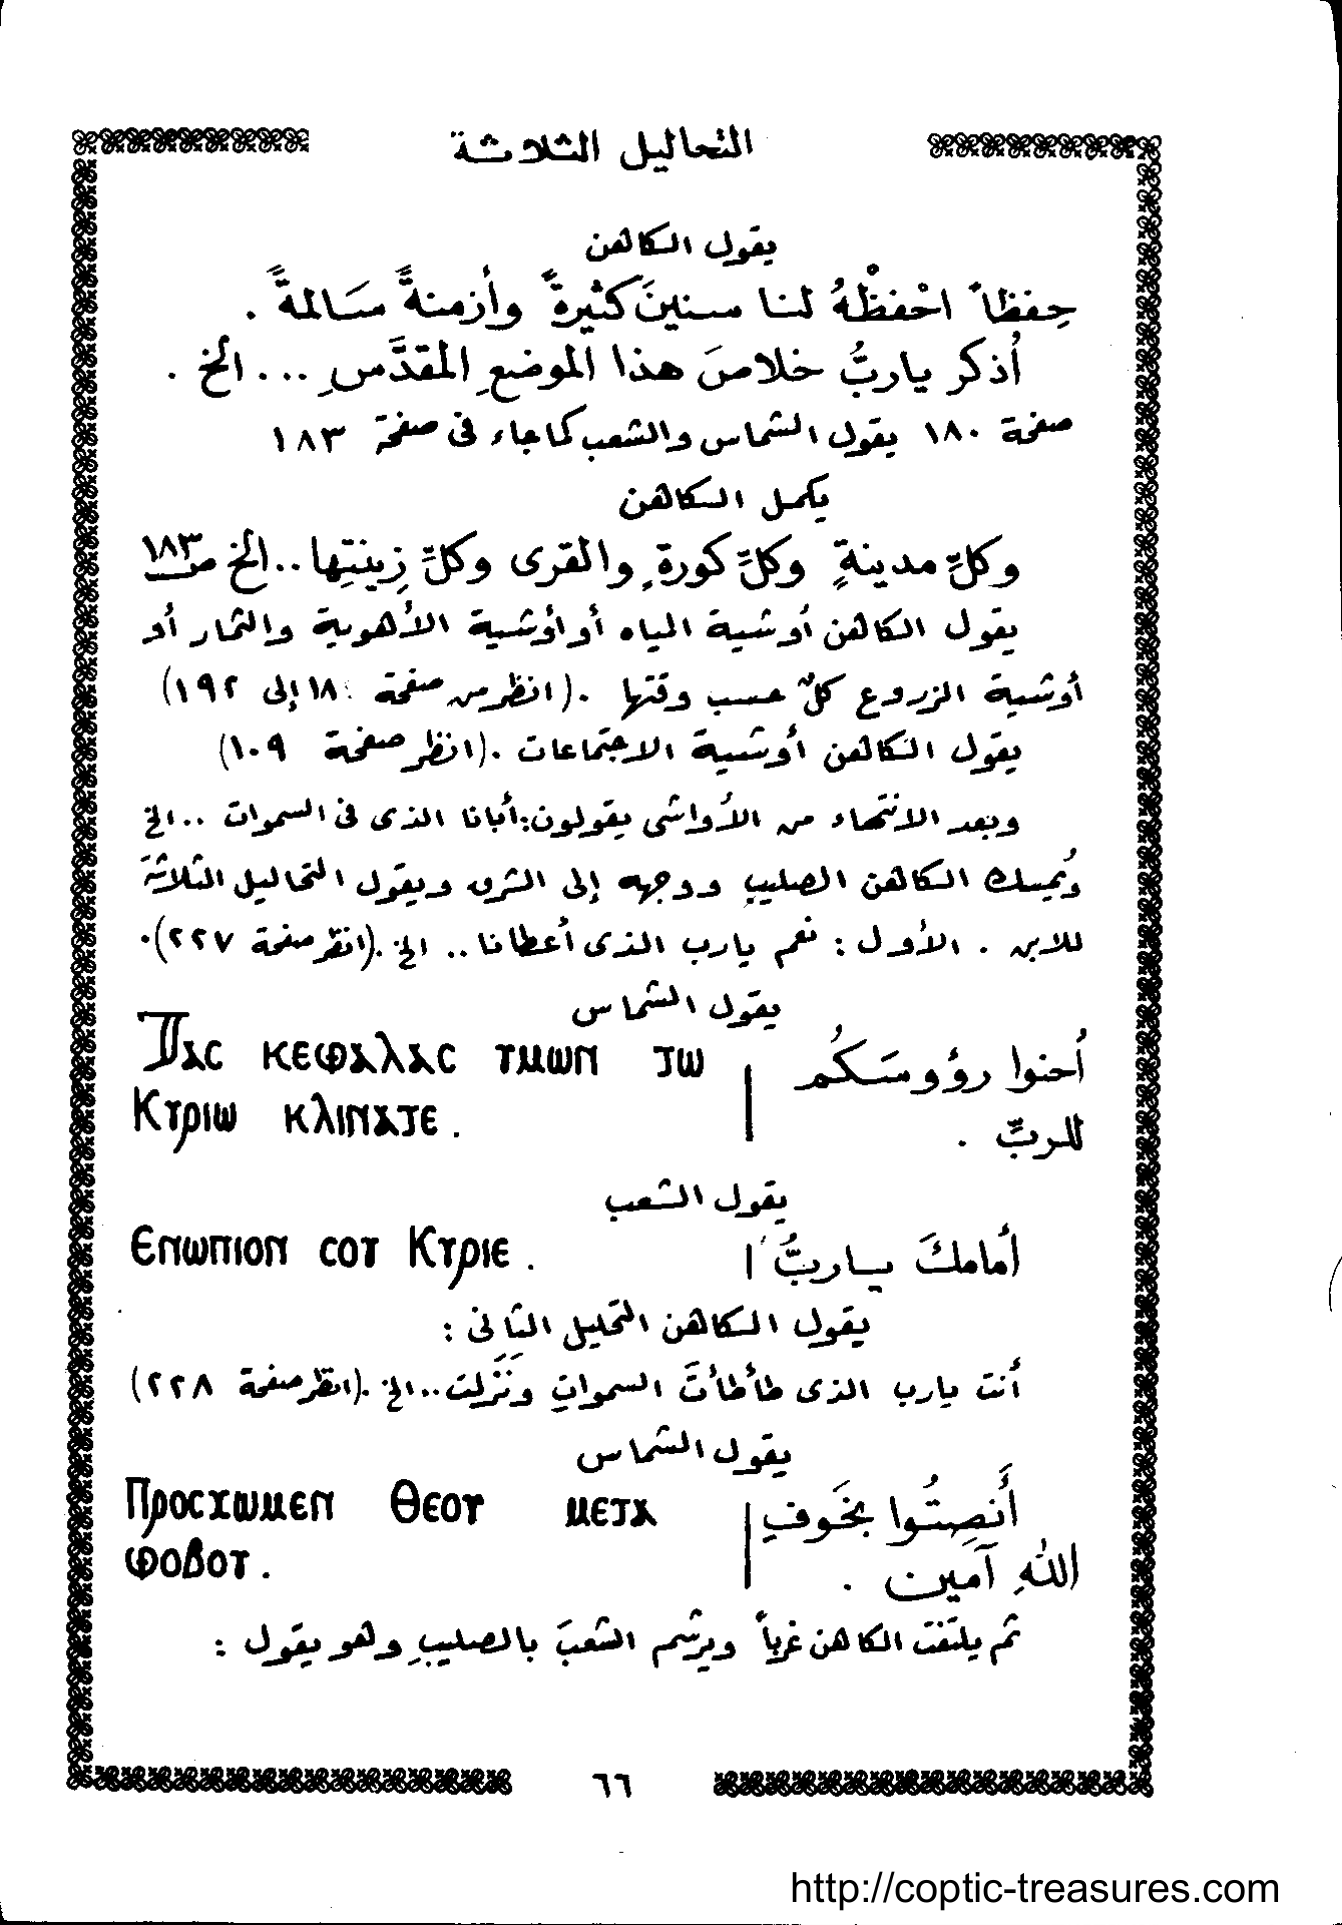 التحاليل الثلاثة
يقول الكاهن
حِفظاً احْفظْهُ لنا سنينَ كثيرةً وأزمنةً سَالمةً .
أُذكر ياربُّ خلاصَ هذا الموضعِ المقدَّسِ ... الخ .
صفحة ١٨٠ يقول الشماس والشعب كما جاء فى صفحة ١٨٣
يكمل الكاهن
وكلِّ مدينةٍ وكلِّ كورةٍ والقرى وكلِّ زِينتِها .. الخ ص ١٨٣
يقول الكاهن أوشية المياه أو أوشية الأهوية والثمار أو
أوشية الزروع كلٌ حسب وقتها . (انظر من صفحة ١٨٠ إلى ١٩٢)
يقول الكاهن أوشية الاجتماعات . (انظر صفحة ١٠٩)
وبعد الانتهاء من الأواشى يقولون: أبانا الذى فى السموات .. الخ
ويُمسك الكاهن الصليب ووجهه إلى الشرق ويقول التحاليل الثلاثة
للابن . الأول : نعم يارب الذى أعطانا .. الخ . (انظر صفحة ٢٢٧) .
يقول الشماس
Ⲧⲁⲥ ⲕⲉⲫⲁⲗⲁⲥ ⲩⲙⲱⲛ ⲧⲱ أحنوا رؤوسَكُم
Ⲕⲩⲣⲓⲱ ⲕⲗⲓⲛⲁⲧⲉ . للربِّ .
يقول الشعب
Ⲉⲛⲱⲡⲓⲟⲛ ⲥⲟⲩ Ⲕⲩⲣⲓⲉ . أمامكَ ياربُّ
يقول الكاهن التحليل الثانى :
أنت يارب الذى طأطأتَ السمواتِ ونَزَلت .. الخ . (انظر صفحة ٢٢٨)
يقول الشماس
Ⲡⲣⲟⲥⲭⲱⲙⲉⲛ Ⲑⲉⲟⲩ ⲙⲉⲧⲁ أَنصِتُوا بخَوفِ
ⲫⲟⲃⲟⲩ . اللهِ آمين .
ثم يلتفت الكاهن غرباً ويرشم الشعبَ بالصليبِ وهو يقول :
٦٦
http://coptic-treasures.com